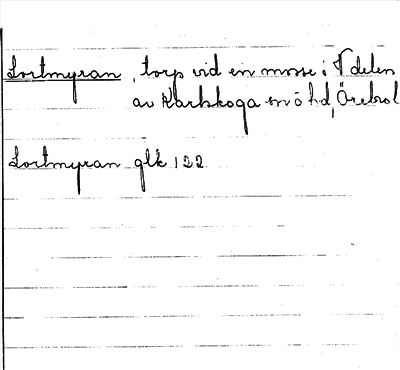 Lortmyran, torp vid en mosse i V delen
av Karlskoga sn o hd, Örebro l
Lortmyran glk 122